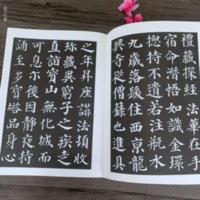 禮藏探經法華在手
宿命潛悟如識金環
揔持不遺若注瓶水
九歲落髮住西京龍
興寺從僧籙也進具
之年昇座講法頓收
珎藏異窮子之疾走
直詣寶山無化城而
可息尒後因靜夜持
誦至多寶塔品身心